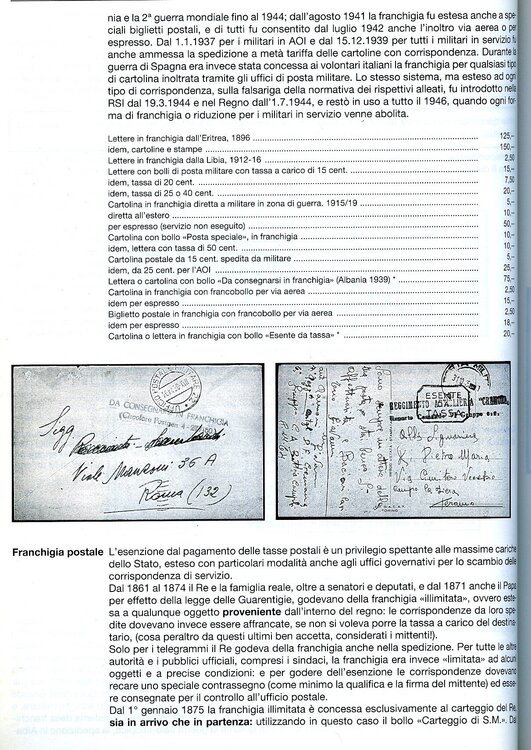 nia e la 2ª guerra mondiale fino al 1944; dall'agosto 1941 la franchigia fu estesa anche a spe-
ciali biglietti postali, e di tutti fu consentito dal luglio 1942 anche l'inoltro via aerea o per
espresso. Dal 1.1.1937 per i militari in AOI e dal 15.12.1939 per tutti i militari in servizio fu
anche ammessa la spedizione a metà tariffa delle cartoline con corrispondenza. Durante la
guerra di Spagna era invece stata concessa ai volontari italiani la franchigia per qualsiasi tipo
di cartolina inoltrata tramite gli uffici di posta militare. Lo stesso sistema, ma esteso ad ogni
tipo di corrispondenza, sulla falsariga della normativa dei rispettivi alleati, fu introdotto nella
RSI dal 19.3.1944 e nel Regno dall'1.7.1944, e restò in uso a tutto il 1946, quando ogni for-
ma di franchigia o riduzione per i militari in servizio venne abolita.
Lettere in franchigia dall'Eritrea, 1896 125,–
idem, cartoline e stampe 150,–
Lettere in franchigia dalla Libia, 1912-16 2,50
Lettere con bolli di posta militare con tassa a carico di 15 cent. 15,–
idem, tassa di 20 cent. 7,50
idem, tassa di 25 o 40 cent. 20,–
Cartolina in franchigia diretta a militare in zona di guerra. 1915/19 5,–
diretta all'estero 10,–
per espresso (servizio non eseguito) 50,–
Cartolina con bollo «Posta speciale», in franchigia 10,–
idem, lettera con tassa di 50 cent. 50,–
Cartolina postale da 15 cent. spedita da militare 5,–
idem, da 25 cent. per l'AOI 25,–
Lettera o cartolina con bollo «Da consegnarsi in franchigia» (Albania 1939) * 75,–
Cartolina in franchigia con francobollo per via aerea 2,50
idem per espresso 15,–
Biglietto postale in franchigia con francobollo per via aerea 2,50
idem per espresso 18,–
Cartolina o lettera in franchigia con bollo «Esente da tassa» * 20,–
DA CONSEGNARSI IN FRANCHIGIA
Sigg
Viale Manzoni 36 A
Roma (132)
ESENTE
TASSA
Alla Signorina
Teramo
Franchigia postale L'esenzione dal pagamento delle tasse postali è un privilegio spettante alle massime cariche
dello Stato, esteso con particolari modalità anche agli uffici governativi per lo scambio della
corrispondenza di servizio.
Dal 1861 al 1874 il Re e la famiglia reale, oltre a senatori e deputati, e dal 1871 anche il Papa
per effetto della legge delle Guarentigie, godevano della franchigia «illimitata», ovvero este-
sa a qualunque oggetto proveniente dall'interno del regno: le corrispondenze da loro spe-
dite dovevano invece essere affrancate, se non si voleva porre la tassa a carico del destina-
tario, (cosa peraltro da questi ultimi ben accetta, considerati i mittenti!).
Solo per i telegrammi il Re godeva della franchigia anche nella spedizione. Per tutte le altre
autorità e i pubblici ufficiali, compresi i sindaci, la franchigia era invece «limitata» ad alcuni
oggetti e a precise condizioni: e per godere dell'esenzione le corrispondenze dovevano
recare uno speciale contrassegno (come minimo la qualifica e la firma del mittente) ed esse-
re consegnate per il controllo all'ufficio postale.
Dal 1° gennaio 1875 la franchigia illimitata è concessa esclusivamente al carteggio del Re,
sia in arrivo che in partenza: utilizzando in questo caso il bollo «Carteggio di S.M.». Da